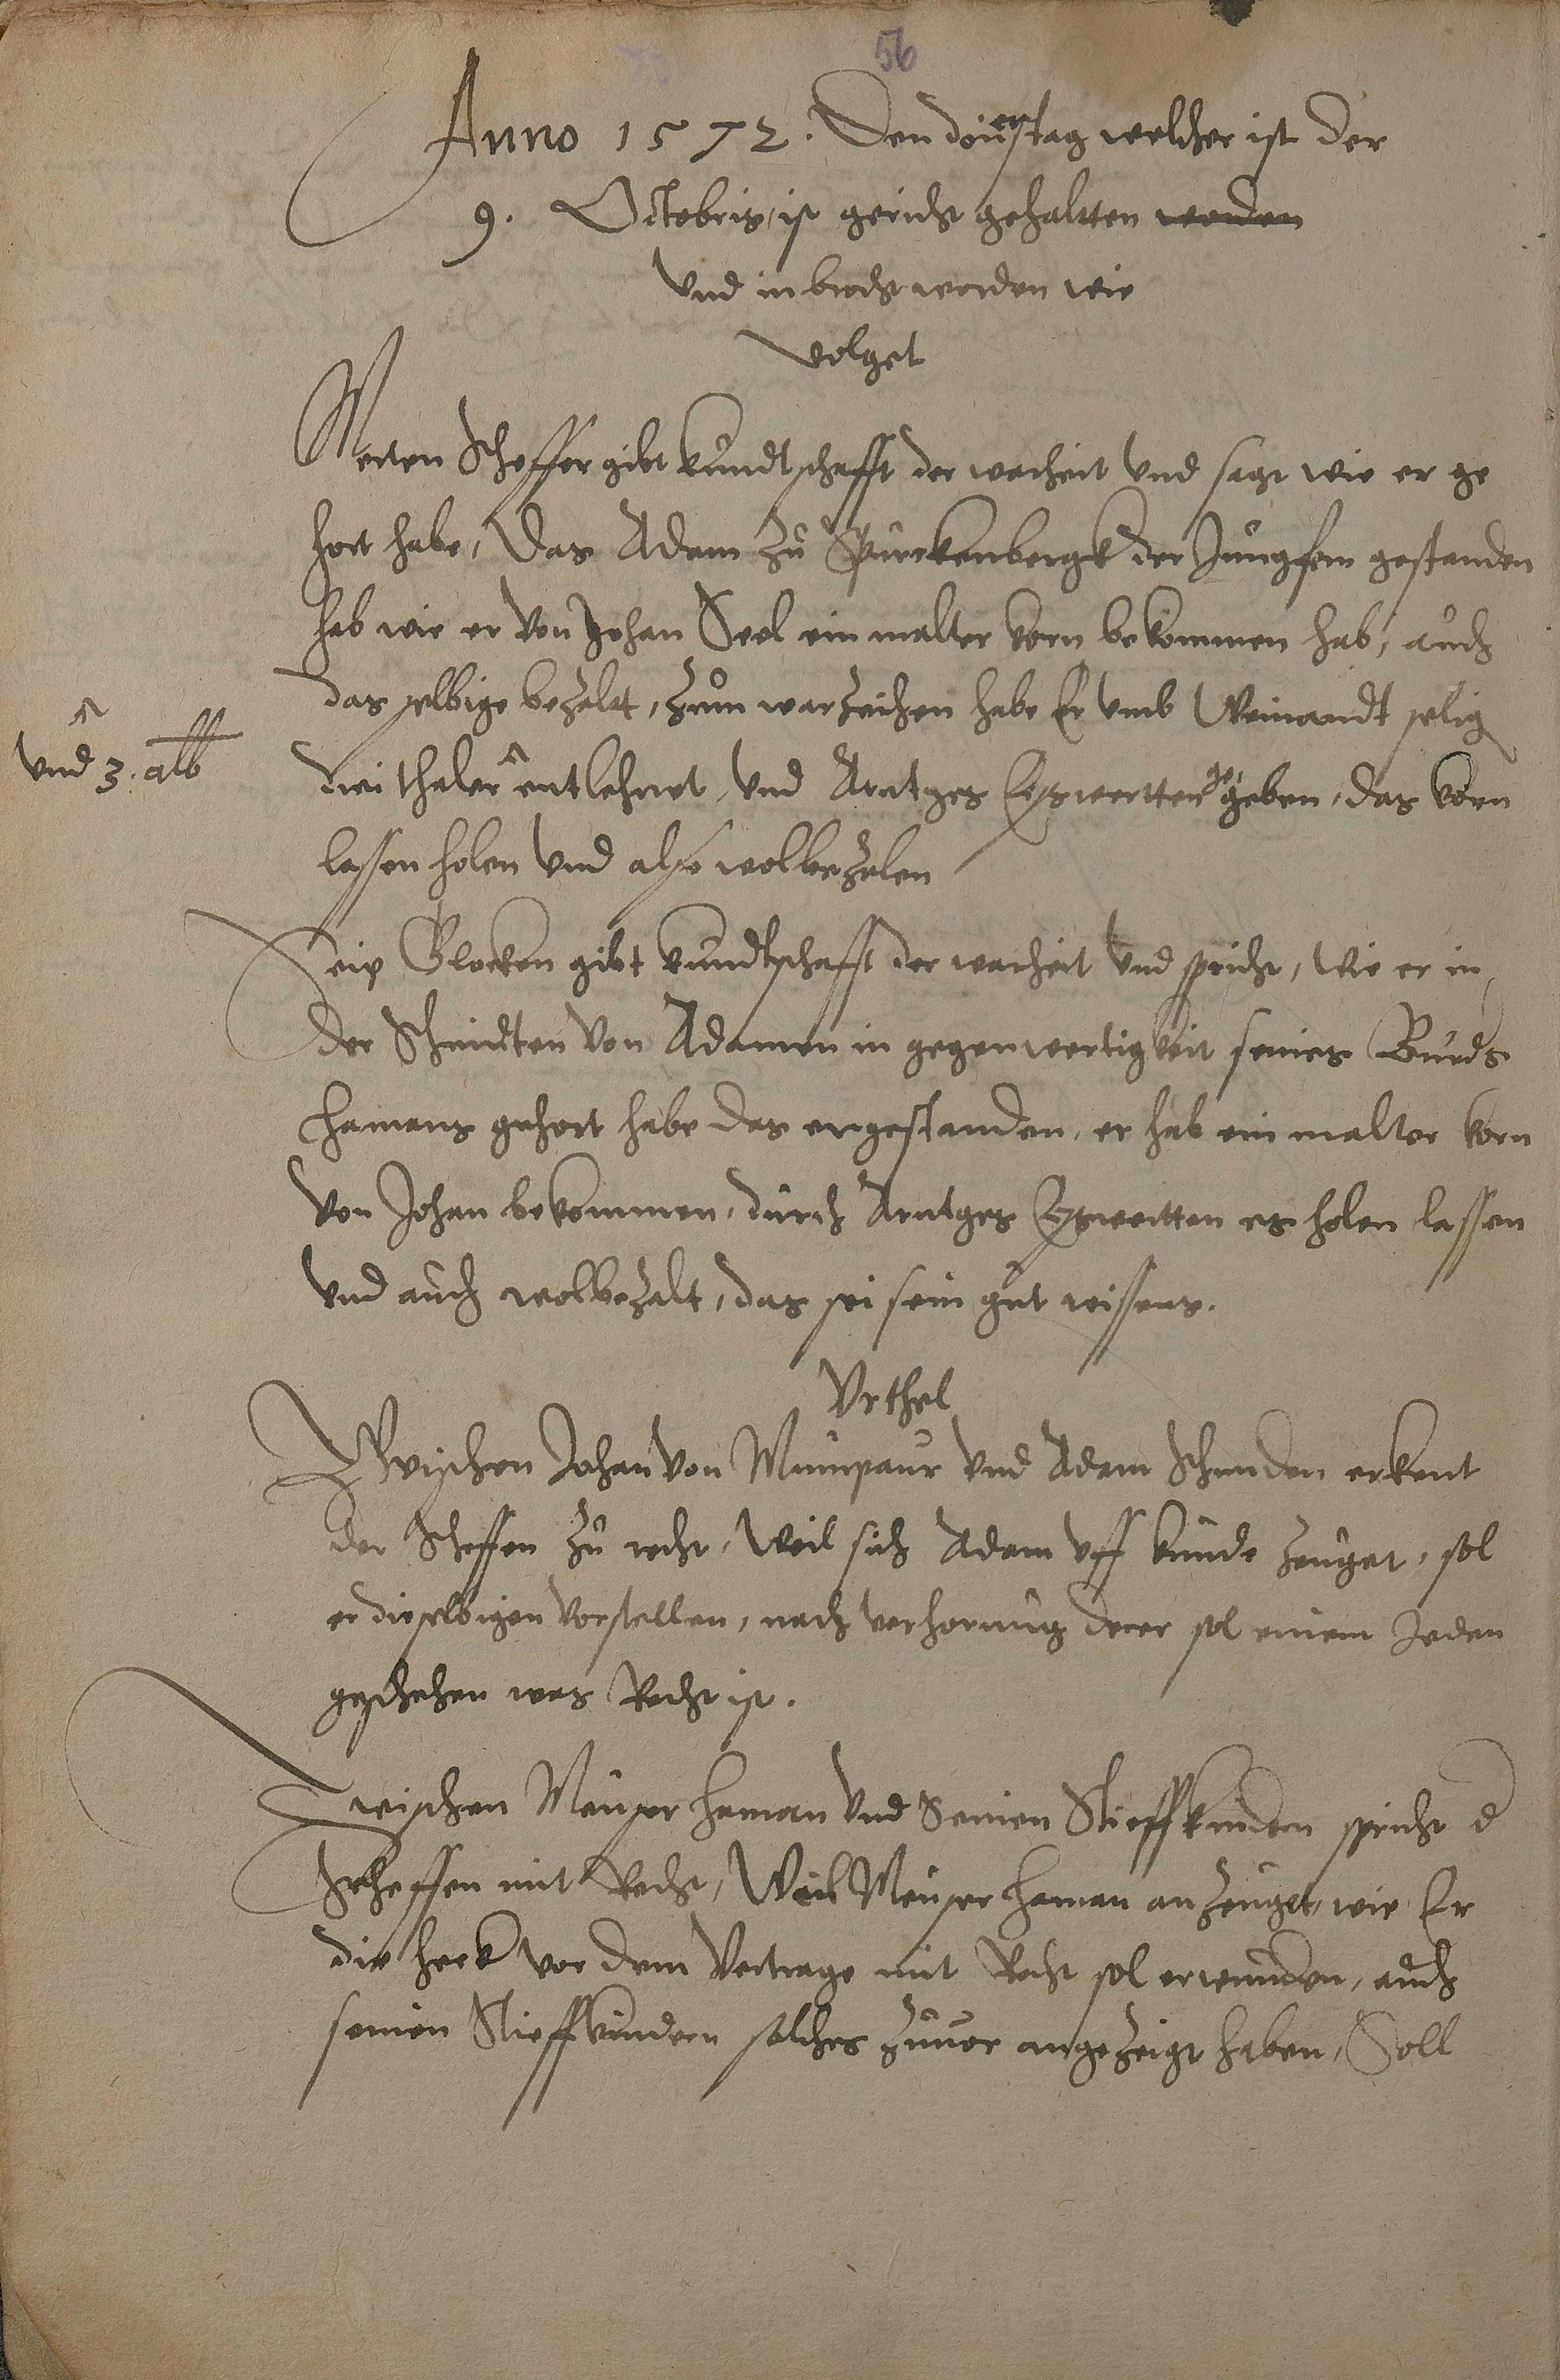 56
Anno 1572. Den donerstag welcher ist der
9. Octobris, ist gericht gehaltten worden
Vnd inbracht worden wie
volget
Merten Scheffer gibt kundtschafft der warheit vnd sagt wie er ge
hort habe, das Adam zu Spurckenbergk der Jungfern gestanden
hab wie er von Johan Seel ein malter korn bekommen hab, auch
das selbige bezalt, zum warzeichen habe Er vmb Weinandt selig
drei thaler entlehnet, vnd Arntges geben, das korn
vnd 3. alb
lassen holen vnd also wolbezalen
Seip Glocken gibt kundtschafft der warheit vnd spricht, wie er in
der Schmidten von Adamen in gegenwertigkeit seines
Hamans gehort habe das er gestanden, er hab ein malter korn
von Johan bekommen, durch Arntges es holen lassen
vnd auch wolbezalt, das sei sein gut wissens.
Vrthel
Zwischen Johan von Muntpaur vnd Adam Schmiden erkent
der Scheffen zu recht, Weil sich Adam vff kunde zeuget, sol
er dieselbigen vorstellen, nach verhorung derer sol einem Jeden
geschehen was Recht ist.
Zwischen Meuser Haman vnd Seinen Stieffkindern spricht d
Scheffen mit Recht, Weil Meuser Haman anzeuget, wie Er
die heck vor dem Vertrage mit Recht sol erwunden, auch
seinen Stieffkindern solches zuuor angezeigt haben, Soll